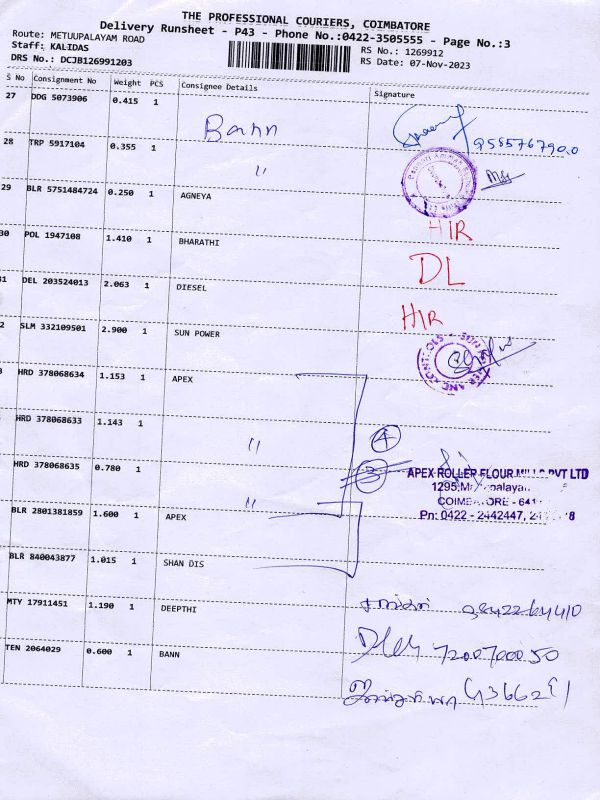 THE PROFESSIONAL COURIERS, COIMBATORE
Delivery Runsheet - P43 - Phone No.:0422-3505555 - Page No.:3
Route: METUUPALAYAM ROAD
Staff: KALIDAS
RS No.: 1269912
DRS No.: DCJB126991203
RS Date: 07-Nov-2023
S No Consignment No Weight PCS Consignee Details Signature
27 DDG 5073906 0.415 1 Bann
28 TRP 5917104 0.355 1 "
29 BLR 5751484724 0.250 1 AGNEYA HIR
30 POL 1947108 1.410 1 BHARATHI DL
31 DEL 203524013 2.063 1 DIESEL HIR
2 SLM 332109501 2.900 1 SUN POWER
HRD 378068634 1.153 1 APEX
HRD 378068633 1.143 1 " 4
HRD 378068635 0.780 1 " 3
APEX ROLLER FLOUR MILLS PVT LTD
COIMBATORE - 641
BLR 2801381859 1.600 1 APEX
Pn: 0422 - 2442447,
BLR 840043877 1.015 1 SHAN DIS
MTY 17911451 1.190 1 DEEPTHI
TEN 2064029 0.600 1 BANN